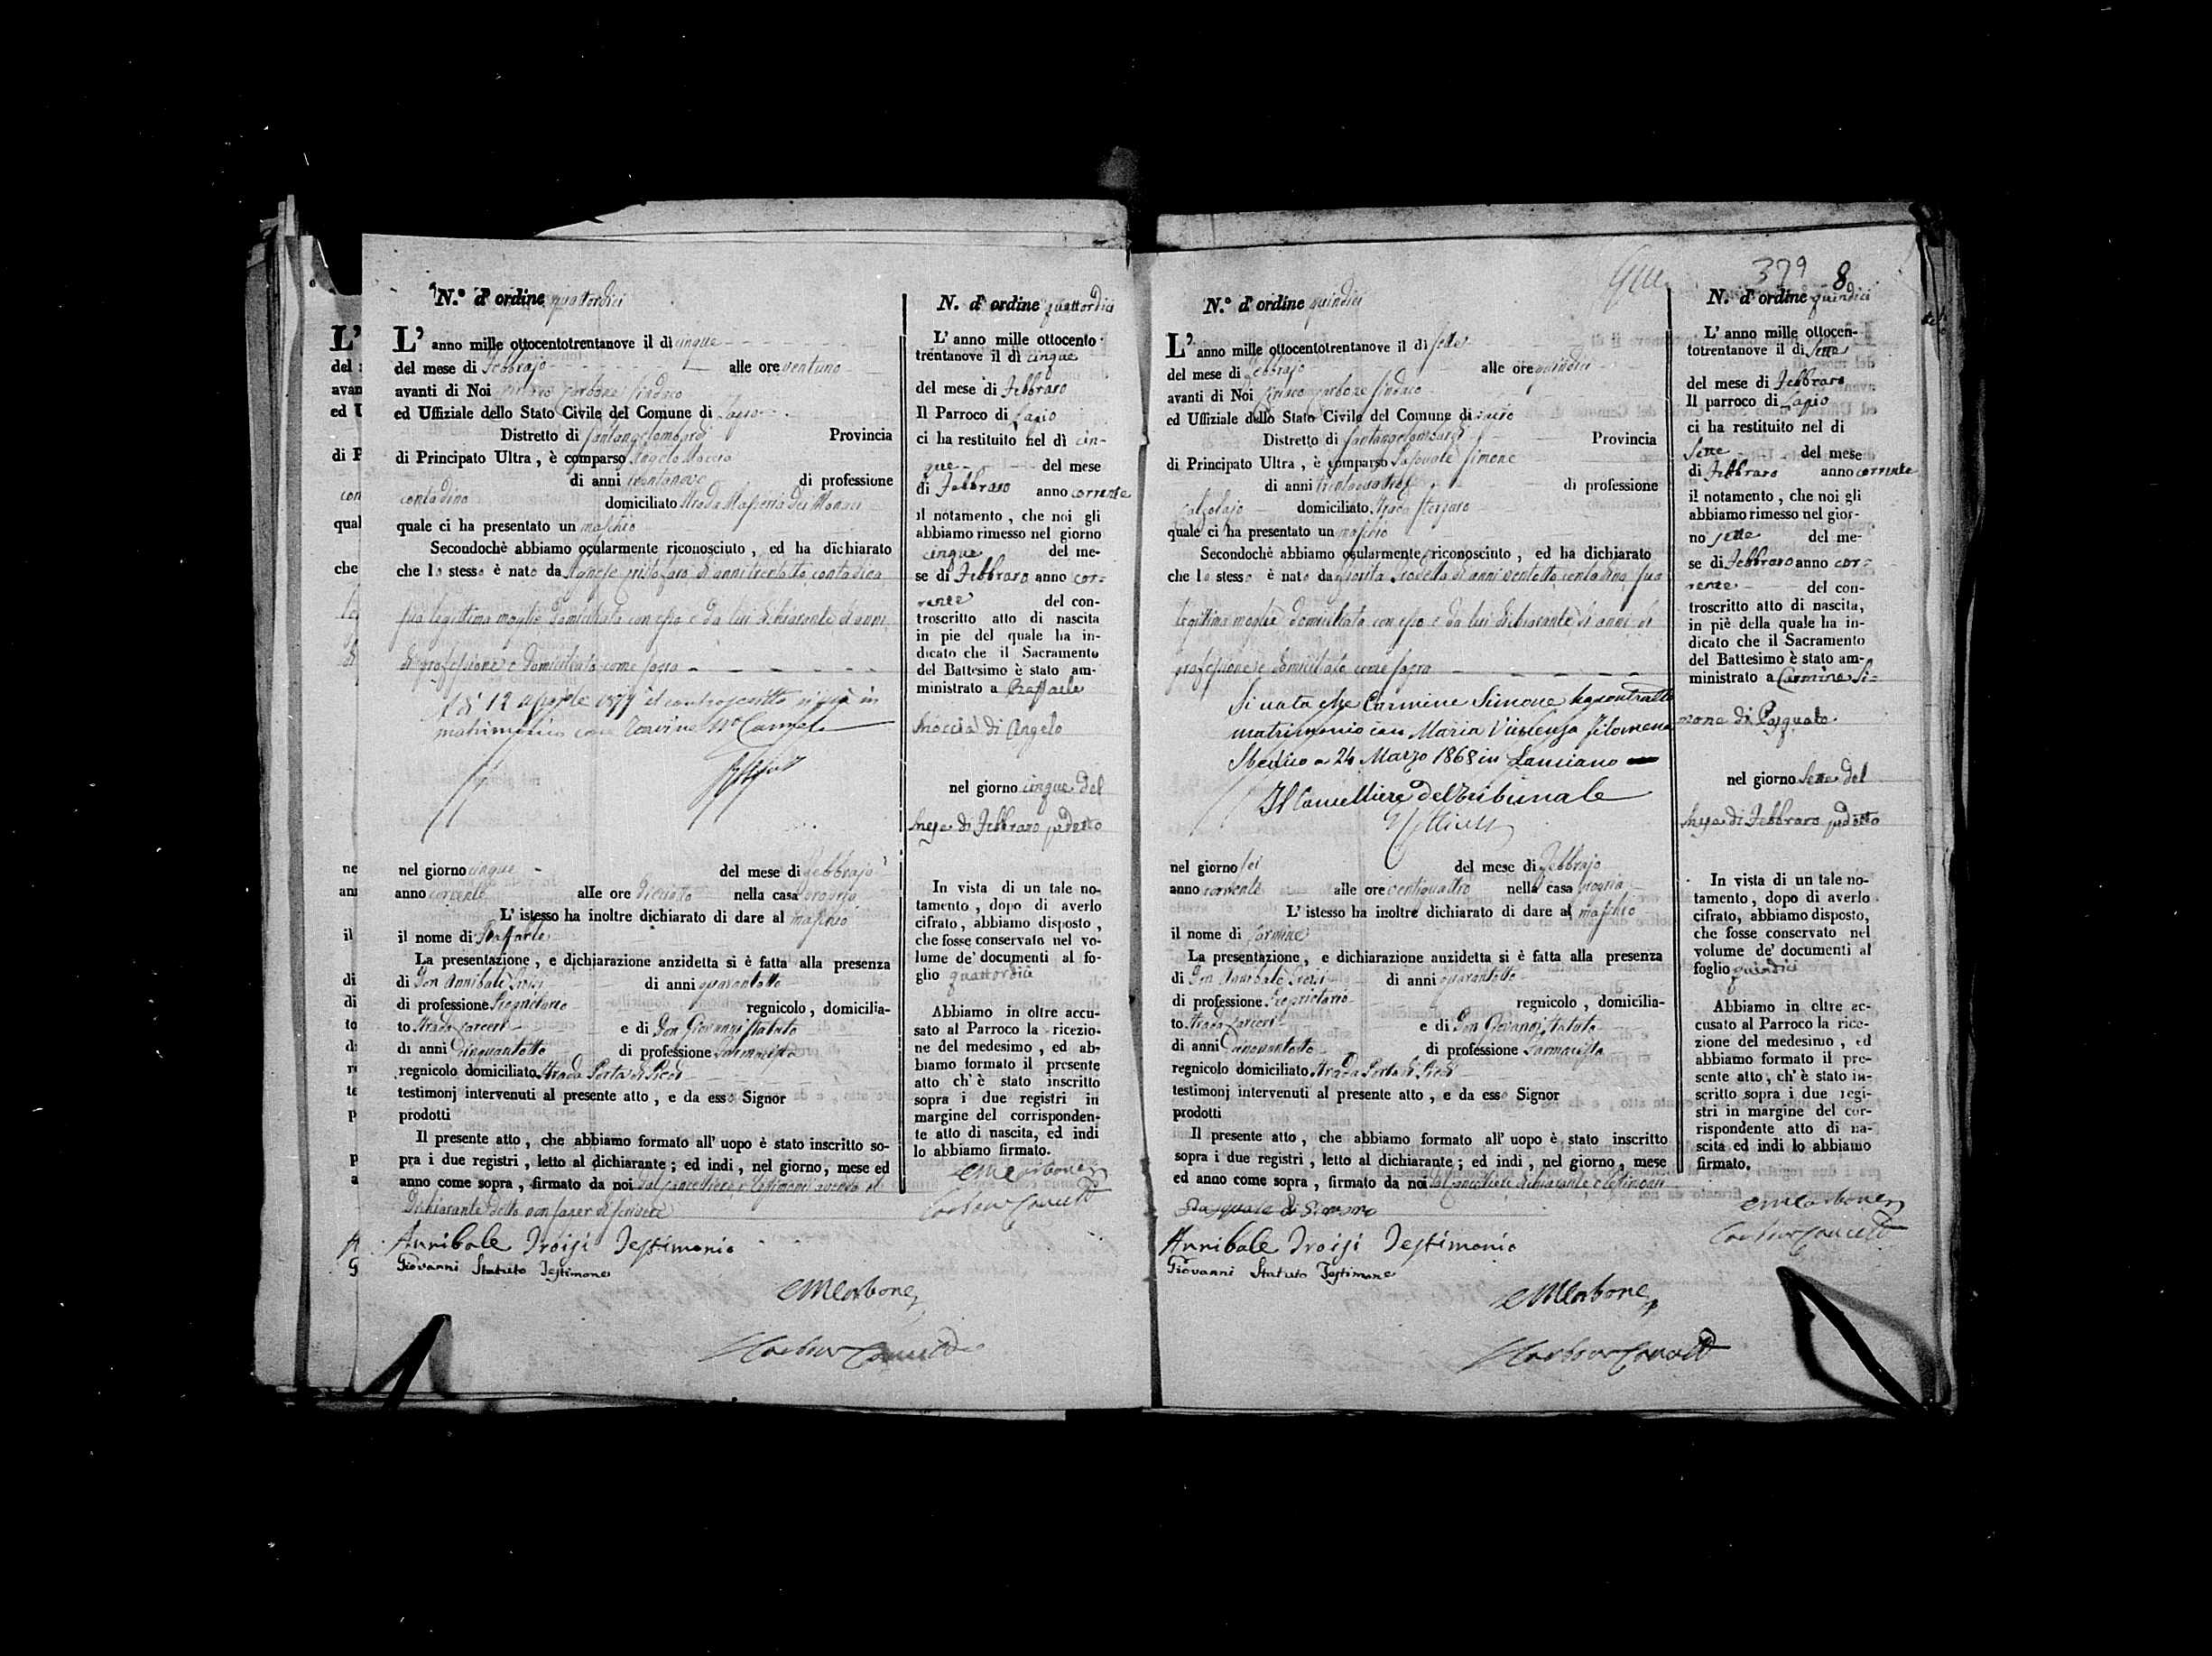 N.º d' ordine quattordici
L' anno mille ottocentotrentanove il dì cinque
del mese di Febbrajo alle ore ventuno
avanti di Noi Carbone Sindaco
ed Uffiziale dello Stato Civile del Comune di Lapio
Distretto di Santangelolombardi Provincia
di Principato Ultra, è comparso Angelo Moccia
di anni trentanove di professione
contadino domiciliato Strada Masseria dei Monaci
quale ci ha presentato un maschio
Secondochè abbiamo ocularmente riconosciuto, ed ha dichiarato
che lo stesso è nato da Agnese di anni trentotto contadina
sua legittima moglie domiciliata con esso e da lui dichiarante di anni
di professione e domiciliato come sopra
A dì 12 aprile il controscritto si unì in
matrimonio con Mª Carmela
nel giorno cinque del mese di Febbrajo
anno corrente alle ore diciotto nella casa propria
L' istesso ha inoltre dichiarato di dare al maschio
il nome di Raffaele
La presentazione, e dichiarazione anzidetta si è fatta alla presenza
di Don Annibale Troisi di anni quarantotto
di professione Proprietario regnicolo, domicilia-
to Strada Carceri e di Don Giovanni Statuto
di anni cinquantotto di professione Farmacista
regnicolo domiciliato Strada Porta di Piedi
testimonj intervenuti al presente atto, e da esso Signor
prodotti
Il presente atto, che abbiamo formato all' uopo è stato inscritto so-
pra i due registri, letto al dichiarante; ed indi, nel giorno, mese ed
anno come sopra, firmato da noi dal cancelliere e testimoni avendo il
dichiarante detto non saper di scrivere
Annibale Troisi Testimonio
Giovanni Statuto Testimone
Carbone
N. d' ordine quattordici
L' anno mille ottocento
trentanove il dì cinque
del mese di Febbraro
Il Parroco di Lapio
ci ha restituito nel dì cin-
que del mese
di Febbraro anno corrente
il notamento, che noi gli
abbiamo rimesso nel giorno
cinque del me-
se di Febbraro anno cor-
rente del con-
troscritto atto di nascita
in pie del quale ha in-
dicato che il Sacramento
del Battesimo è stato am-
ministrato a Raffaele
Moccia di Angelo
nel giorno cinque del
mese di Febbraro sudetto
In vista di un tale no-
tamento, dopo di averlo
cifrato, abbiamo disposto,
che fosse conservato nel vo-
lume de' documenti al fo-
glio quattordici
Abbiamo in oltre accu-
sato al Parroco la ricezio-
ne del medesimo, ed ab-
biamo formato il presente
atto ch' è stato inscritto
sopra i due registri in
margine del corrisponden-
te atto di nascita, ed indi
lo abbiamo firmato.
Carbone
379 8
N.º d' ordine quindici
L' anno mille ottocentotrentanove il dì sette
del mese di Febbrajo alle ore quindici
avanti di Noi Carbone Sindaco
ed Uffiziale dello Stato Civile del Comune di Lapio
Distretto di Santangelolombardi Provincia
di Principato Ultra, è comparso Pasquale Simone
di anni di professione
calzolajo domiciliato Strada
quale ci ha presentato un maschio
Secondochè abbiamo ocularmente riconosciuto, ed ha dichiarato
che lo stesso è nato da di anni ventotto contadina sua
legittima moglie domiciliata con esso e da lui dichiarante di anni di
professione e domiciliato come sopra
Si nota che Carmine Simone ha contratto
matrimonio con Maria Vincenza Filomena
a 24 Marzo 1868 in Lanciano
Il Cancelliere del Tribunale
nel giorno sei del mese di Febbrajo
anno corrente alle ore ventiquattro nella casa propria
L' istesso ha inoltre dichiarato di dare al maschio
il nome di Carmine
La presentazione, e dichiarazione anzidetta si è fatta alla presenza
di Don Annibale Troisi di anni quarantotto
di professione Proprietario regnicolo, domicilia-
to Strada Carceri e di Don Giovanni Statuto
di anni cinquantotto di professione Farmacista
regnicolo domiciliato Strada Porta di Piedi
testimonj intervenuti al presente atto, e da esso Signor
prodotti
Il presente atto, che abbiamo formato all' uopo è stato inscritto
sopra i due registri, letto al dichiarante; ed indi, nel giorno, mese
ed anno come sopra, firmato da noi dal Cancelliere dichiarante e testimoni
Pasquale di Simone
Annibale Troisi Testimonio
Giovanni Statuto Testimone
Carbone
N. d' ordine quindici
L' anno mille ottocen-
totrentanove il dì sette
del mese di Febbraro
Il parroco di Lapio
ci ha restituito nel di
sette del mese
di Febbraro anno corrente
il notamento, che noi gli
abbiamo rimesso nel gior-
no sette del me-
se di Febbraro anno cor-
rente del con-
troscritto atto di nascita,
in piè della quale ha in-
dicato che il Sacramento
del Battesimo è stato am-
ministrato a Carmine Si-
mone di Pasquale
nel giorno sette del
mese di Febbraro sudetto
In vista di un tale no-
tamento, dopo di averlo
cifrato, abbiamo disposto,
che fosse conservato nel
volume de' documenti al
foglio quindici
Abbiamo in oltre ac-
cusato al Parroco la rice-
zione del medesimo, ed
abbiamo formato il pre-
sente atto, ch' è stato in-
scritto sopra i due regi-
stri in margine del cor-
rispondente atto di na-
scita ed indi lo abbiamo
firmato.
Carbone